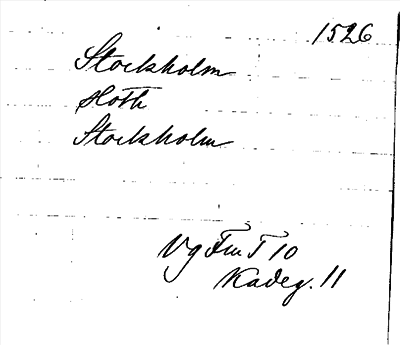 1526
Stockholm
Slott
Stockholm
Vg Fm T 10
Kadeg. 11